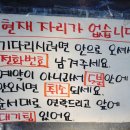 현재 자리가 없습니다
기다리시려면 안으로 오셔서
전화번호 남겨주세요.
예약이 아니라서 5분안에
안오시면 취소되세요.
순서대로 연락드리고 앞에
대기팀 있어요.